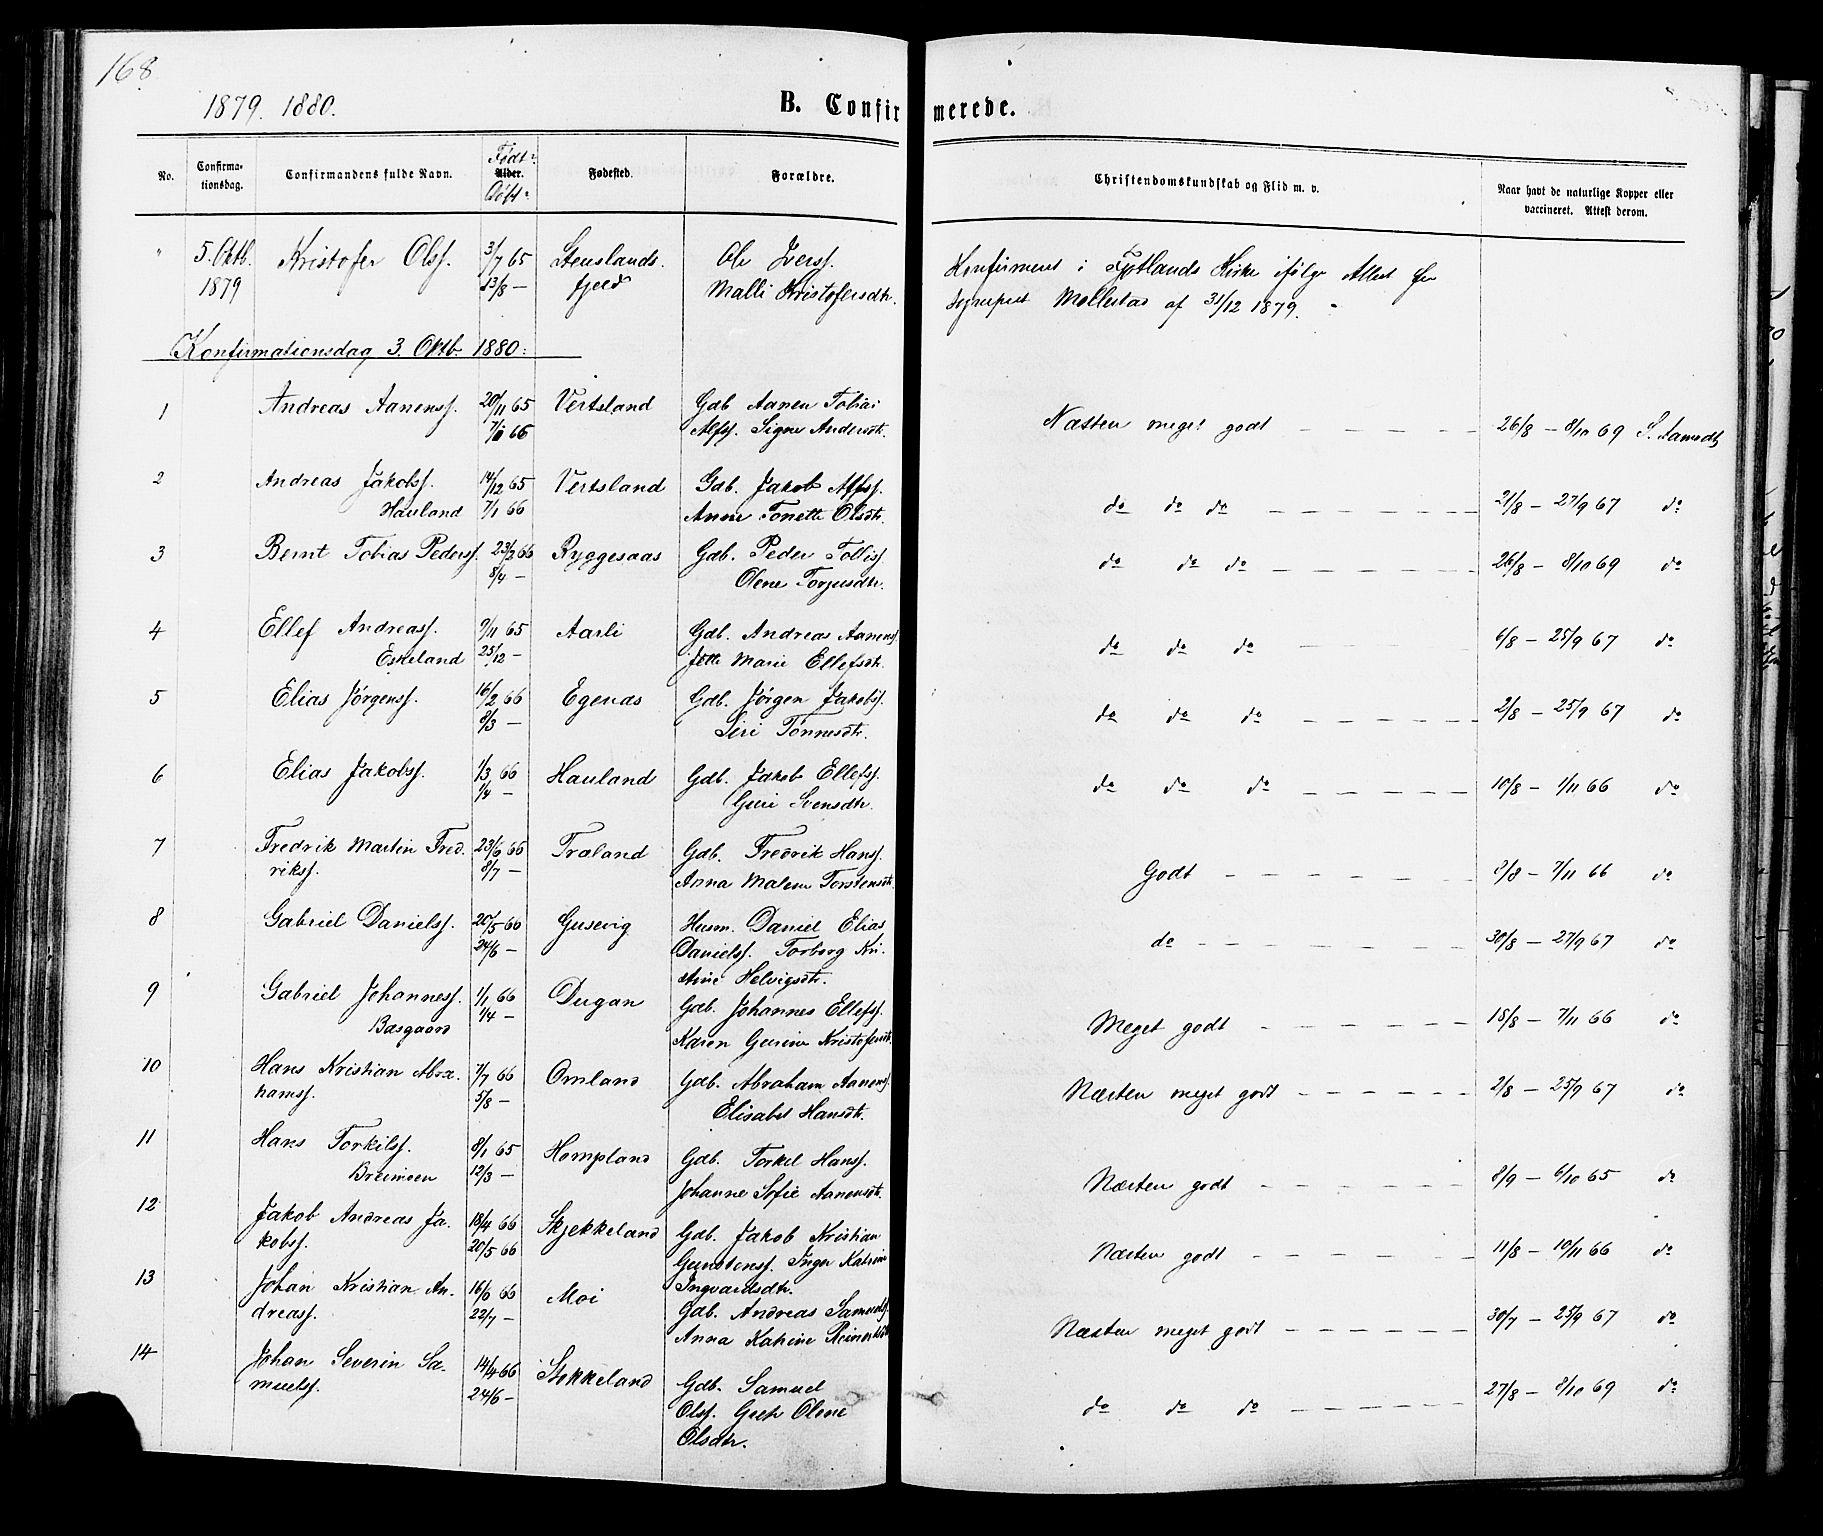 168.
1879. 1880.
B. Confirmerede.
No.
Confirma-
tionsdag.
Confirmandens fulde Navn.
Født-
Alder.
Døbt-
Fødested.
Forældre.
Christendomskundskab og Flid m. v.
Naar havt de naturlige Kopper eller
vaccineret. Attest derom.
" 5. Oktb. Kristofer Olss. 3/7 65 Stenslands- Ole Iverss. Konfirmeret i Fjotlands Kirke ifølge Attest fra
1879 13/8 — fjeld Malli Kristofersdtr. Sogneprest Mollestad af 31/12 1879.
Konfirmationsdag 3. Oktb. 1880:
1 Andreas Aanenss. 20/11 65 Vertsland Gdb Aanen Tobias Næsten meget godt — — — — 26/8 — 8/10 69 S. Aamodt
7/1 66 Alfss. Signe Andersdtr.
2 Andreas Jakobss. 14/12 65 Vertsland Gdb. Jakob Alfss. do do do — — — — 21/8 — 27/9 67 do
Hauland 7/1 66 Anne Tonette Olsdtr.
3 Bernt Tobias Pederss. 23/2 66 Ryggesaas Gdb. Peder Tolliss. do do do — — — — 26/8 — 8/10 69 do
8/4 — Olene Torjusdtr.
4 Ellef Andreass. 9/11 65 Aarli Gdb. Andreas Aanenss. do do do — — — 6/8 — 25/9 67 do
Eskeland 25/12 — Marie Ellefsdtr.
5 Elias Jørgenss. 16/2 66 Egenæs Gdb. Jørgen Jakobss. do do do — — — — 2/8 — 25/9 67 do
9/3 — Siri Tønnesdtr.
6 Elias Jakobss. 1/3 66 Hauland Gdb. Jakob Ellefss. do do do — — — — 10/8 — 1/11 66 do
1/4 — Guri Svensdtr.
7 Fredrik Martin Fred- 23/6 66 Træland Gdb. Fredrik Hanss. Godt — — — — — 8/8 — 7/11 66 do
rikss. 8/7 — Anna Malene Torstensdtr.
8 Gabriel Danielss. 20/5 66 Gusevig Husm. Daniel Elias do — — — — — 30/8 — 27/9 67 do
24/6 — Danielss. Torborg Kri-
stine Helvigsdtr.
9 Gabriel Johanness. 1/1 66 Dugan Gdb. Johannes Ellefss. Meget godt — — — — — 18/8 — 7/11 66 do
Basgaard 1/4 — Karen Gurine Kristofersdtr.
10 Hans Kristian Abra- 7/7 66 Omland Gdb. Abraham Aanenss. Næsten meget godt — — — — 2/8 — 25/9 67 do
hamss. 5/8 — Elisabet Hansdtr.
11 Hans Torkilss. 8/1 65 Hompland Gdb. Torkel Hanss. Næsten godt — — — — — 8/9 — 6/10 65 do
Breimoen 12/3 — Johanne Sofie Aanensdtr.
12 Jakob Andreas Ja- 18/4 66 Skjekkeland Gdb. Jakob Kristian Næsten godt — — — — — 11/8 — 10/11 66 do
kobss. 20/5 66 Gunstenss. Inger Katrine
Ingvardsdtr.
13 Johan Kristian An- 16/6 66 Moi Gdb. Andreas Samuelss. Næsten meget godt — — — — 30/7 — 25/9 67 do
dreass. 22/7 — Anna Katrine Reinertsdtr
14 Johan Severin Sa- 14/4 66 Stokkeland Gdb. Samuel do do do — — — — 27/8 — 8/10 69 do
muelss. 24/6 — Olss. Olene
Olsdtr.